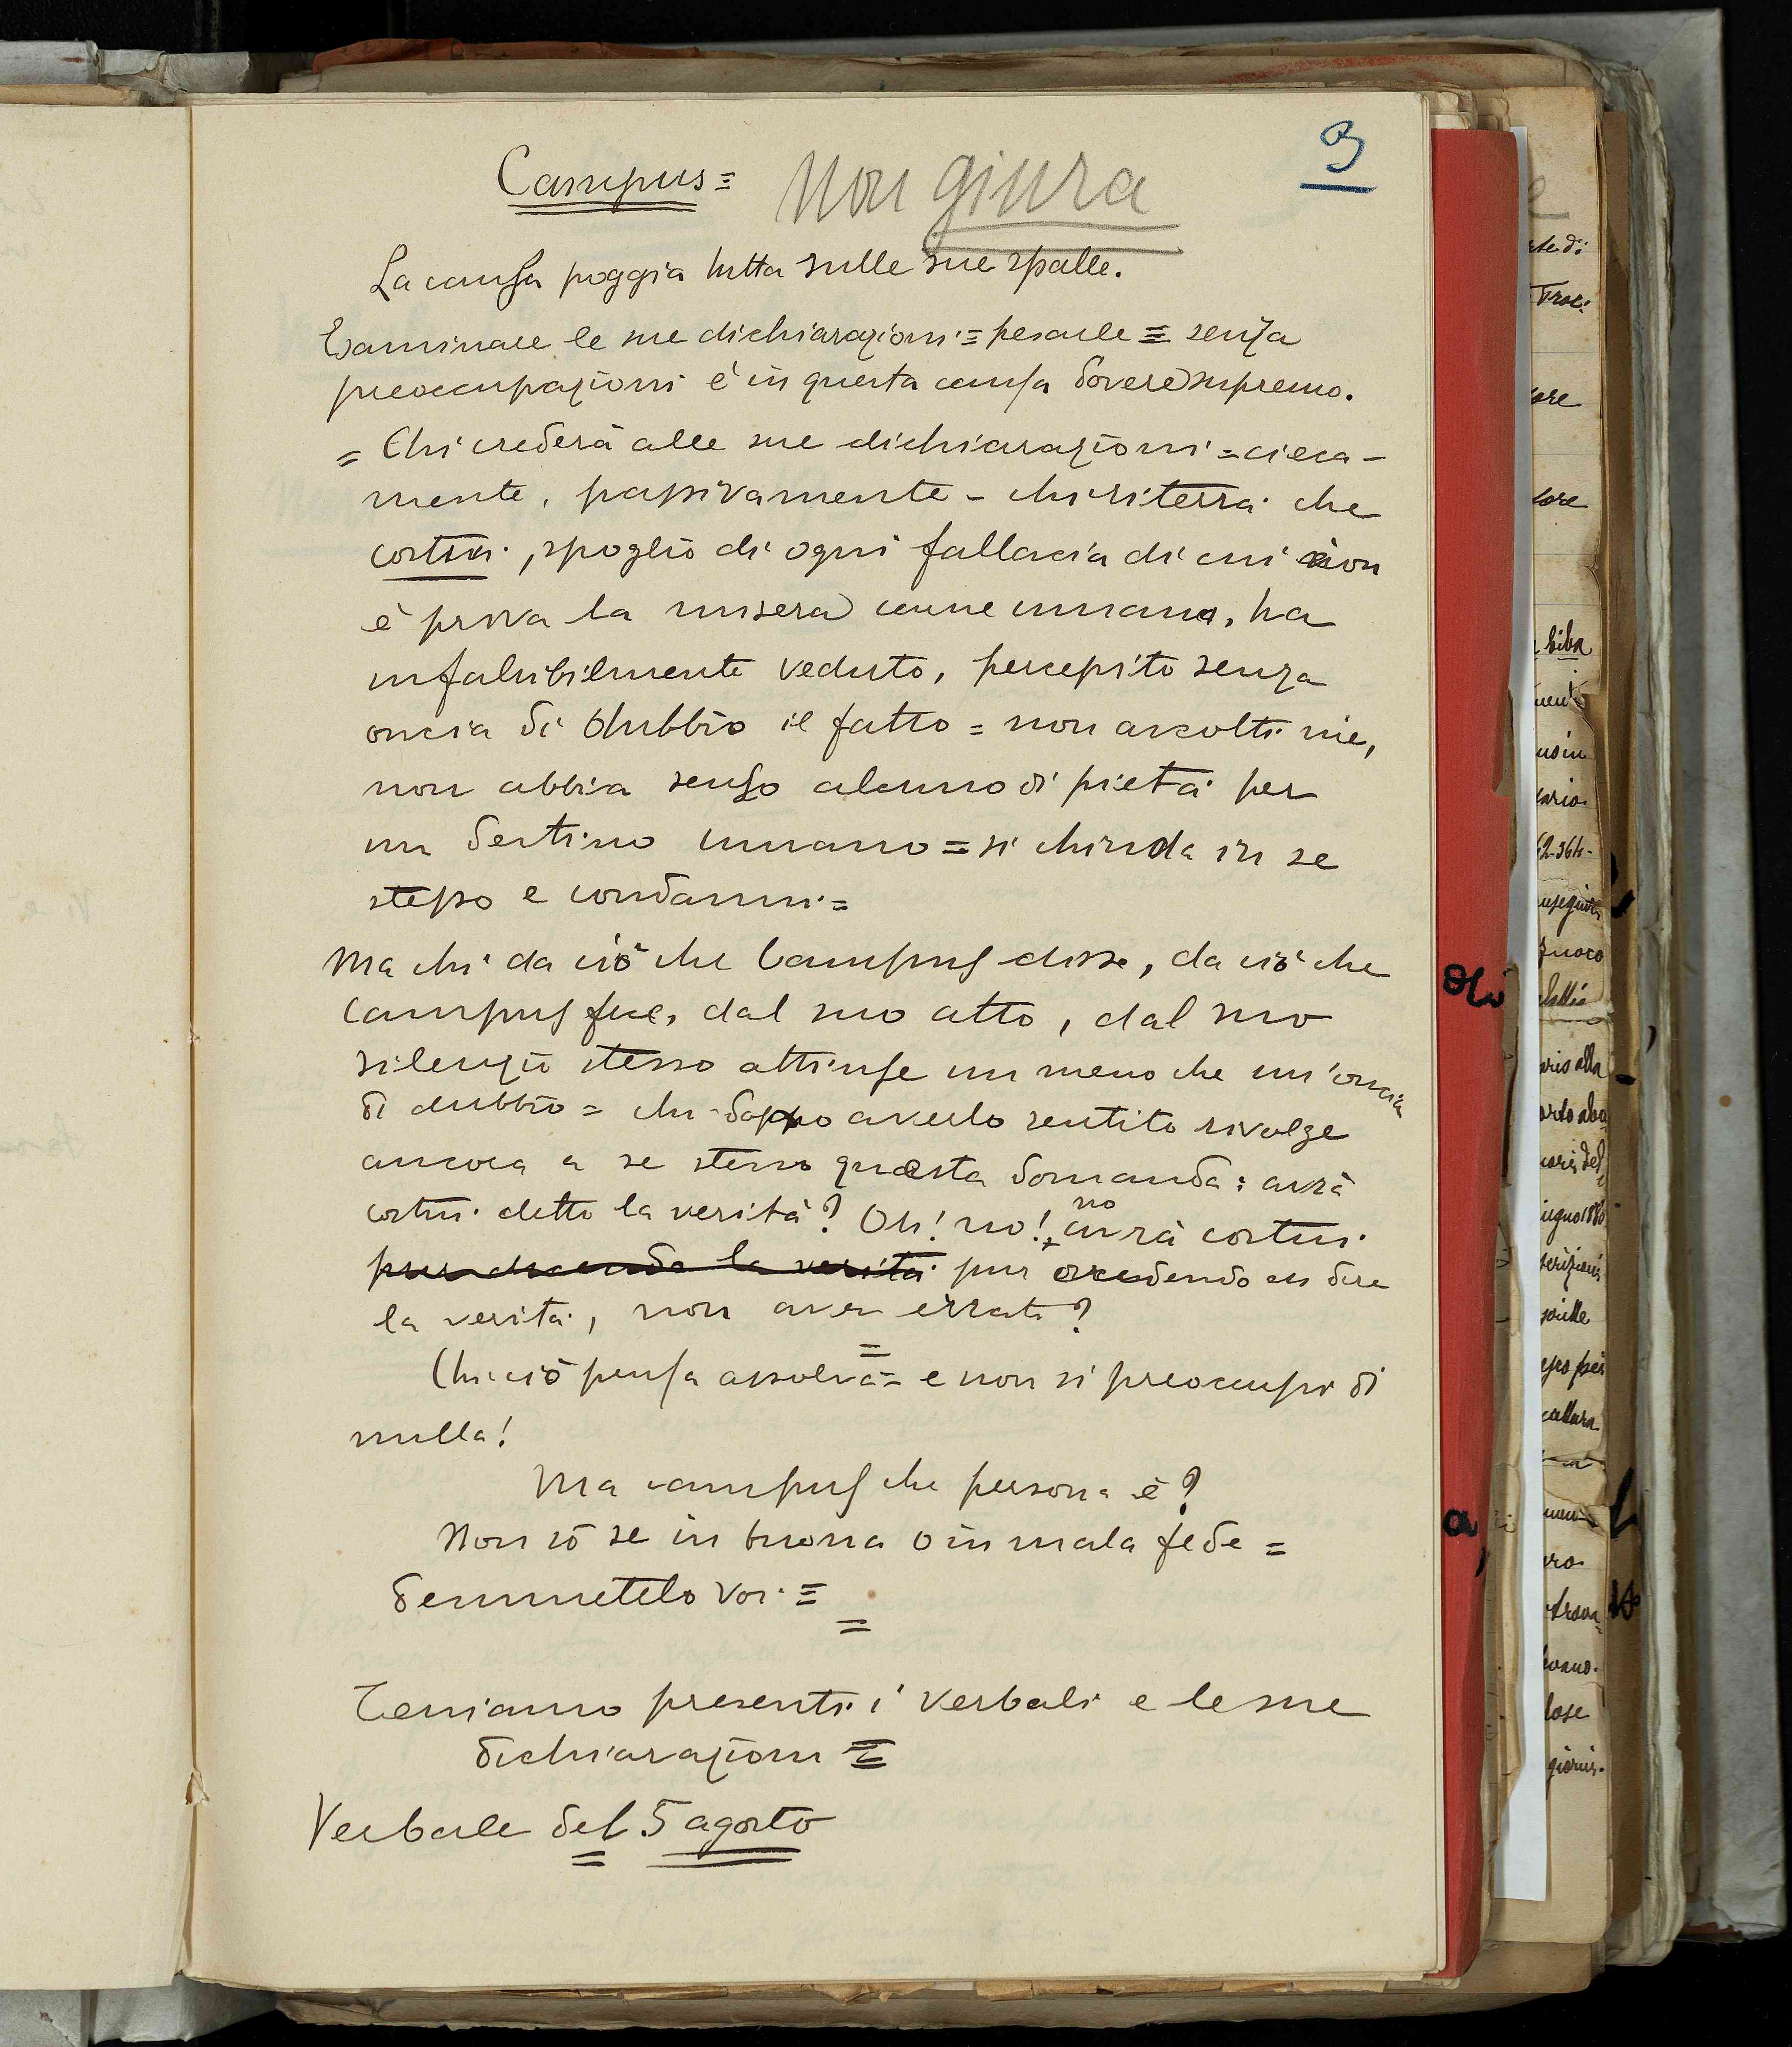 3
Campus = non giura
La causa poggia tutta sulle sue spalle.
Esaminare le sue dichiarazioni = pesarle = senza
preoccupazioni è in questa causa dovere supremo.
= Chi crederà alle sue dichiarazioni = cieca-
mente, passivamente - chi riterrà che
costui, spoglio di ogni fallacia di cui non
è priva la misera carne umana, ha
infallibilmente veduto, percepito senza
oncia di dubbio il fatto = non ascolti me,
non abbia senso alcuno di pietà per
un destino umano = si chiuda in se
stesso e condanni =
Ma chi da ciò che Campus disse, da ciò che
Campus fece, dal suo atto, dal suo
silenzio stesso attinse un meno che un'oncia
di dubbio = chi dopo averlo sentito rivolge
ancora a se stesso questa domanda: avrà
costui detto la verità? Oh! no! no avrà costui
pur dicendo la verità pur credendo di dire
la verità, non aver errato?
Chi ciò pensa assolva = e non si preoccupi di
nulla!
Ma Campus che persona è?
Non so se in buona o in mala fede =
ditemelo voi =
Teniamo presenti i verbali e le sue
dichiarazioni =
Verbale del 5 agosto